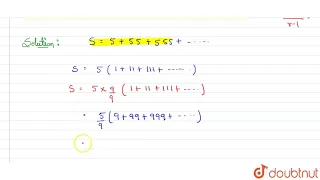 r-1
Solution: S = 5 + 55 + 555 + ......
S = 5 ( 1 + 11 + 111 + ...... )
S = 5 × 9/9 ( 1 + 11 + 111 + ...... )
= 5/9 ( 9 + 99 + 999 + ...... )
doubtnut